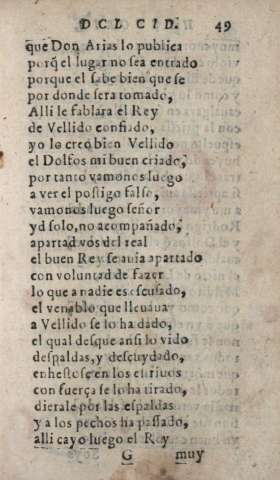 DEL CID. 49
que Don Arias lo publica
porq̃ el lugar no sea entrado
porque el sabe bien que se
por donde sera tomado,
Alli le fablara el Rey
de Vellido confiado,
yo lo creo bien Vellido
el Dolfos mi buen criado,
por tanto vamonos luego
a ver el postigo falso,
vamonos luego señor
yd solo, no acompañado,
apartad vos del real
el buen Rey se auia apartado
con voluntad de fazer
lo que a nadie es escusado,
el venablo que lleuaua
a Vellido se lo ha dado,
el qual desque ansi lo vido
despaldas, y descuydado,
enhestose en los estriuos
con fuerça se lo ha tirado,
dierale por las espaldas
y a los pechos ha passado,
alli cayo luego el Rey
G muy